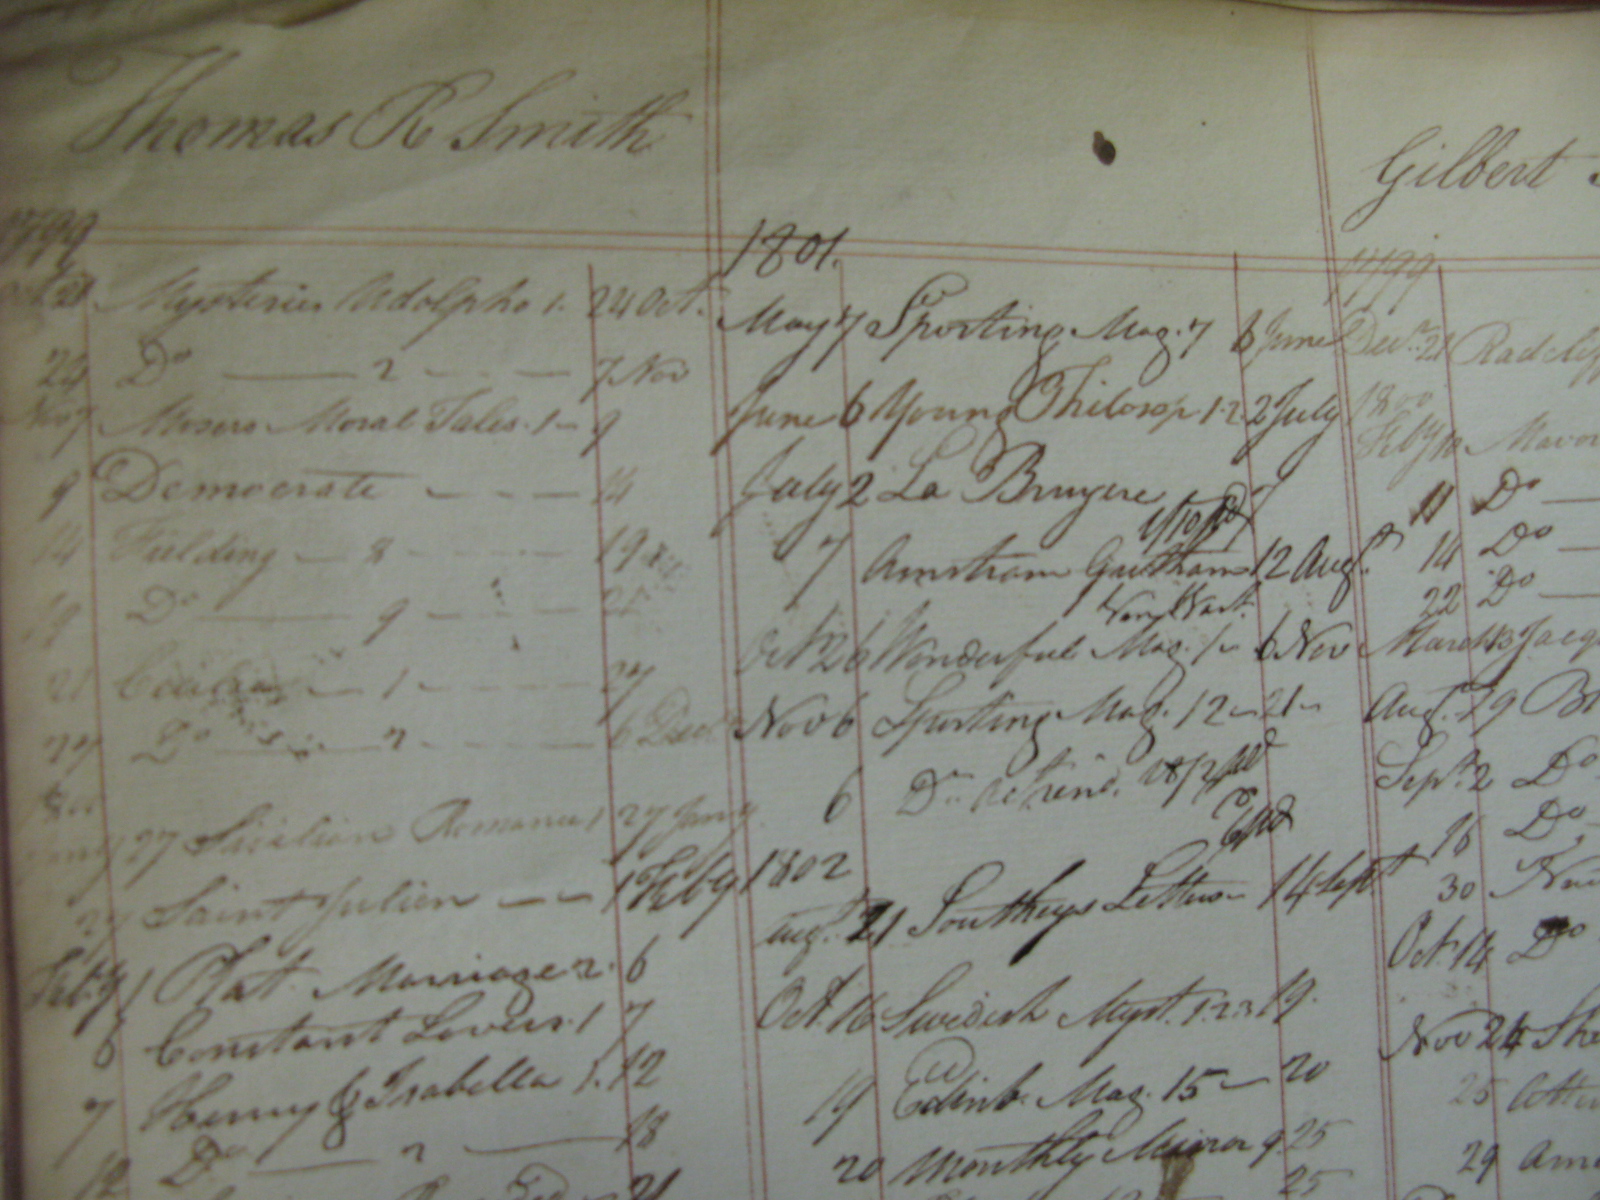 Thomas R Smith
1799
Oct 21 Mysteries Udolpho 1. 24 Oct.
24 Do 2 7 Nov
Nov 7 Mosers Moral Tales. 1 9
9 Democrats 14
14 Fielding 8 19
19 Do 9 21
21 1 27
27 Do 2 6 Decr
27 Sicilian Romance 1 27 Jany
27 Saint Julien 1 Feby
Feby 1 Plat. Marriage 2. 6
6 Constant Lovers. 1 7
7 Henry & Isabella 1. 12
12 Do 2 18
21
1801.
May 7 Sporting Mag. 7 6 June
June 6 Young Philosop 1.2 2 July
July 2 La Bruyere 7
7 12 Augt
Oct 26 Wonderful Mag. 1 6 Nov
Nov 6 Sporting Mag. 12 21
6 Do
1802
Augt. 21 Southeys Letters 14 Sept
Oct. 16 Swedish Myst. 1.2.3 19.
19 Edinb. Mag. 15 20
20 Monthly Mirror 9. 25
25
Gilbert
1799
Decr. 21 Radcliff
1800
Feby Mavor
11 Do
14 Do
22 Do
March 13 Jacq
Aug. 19 Bl
Sept. 2 Do
16 Do
30
Oct. 14 Do
Nov 24 She
25
29 Ame